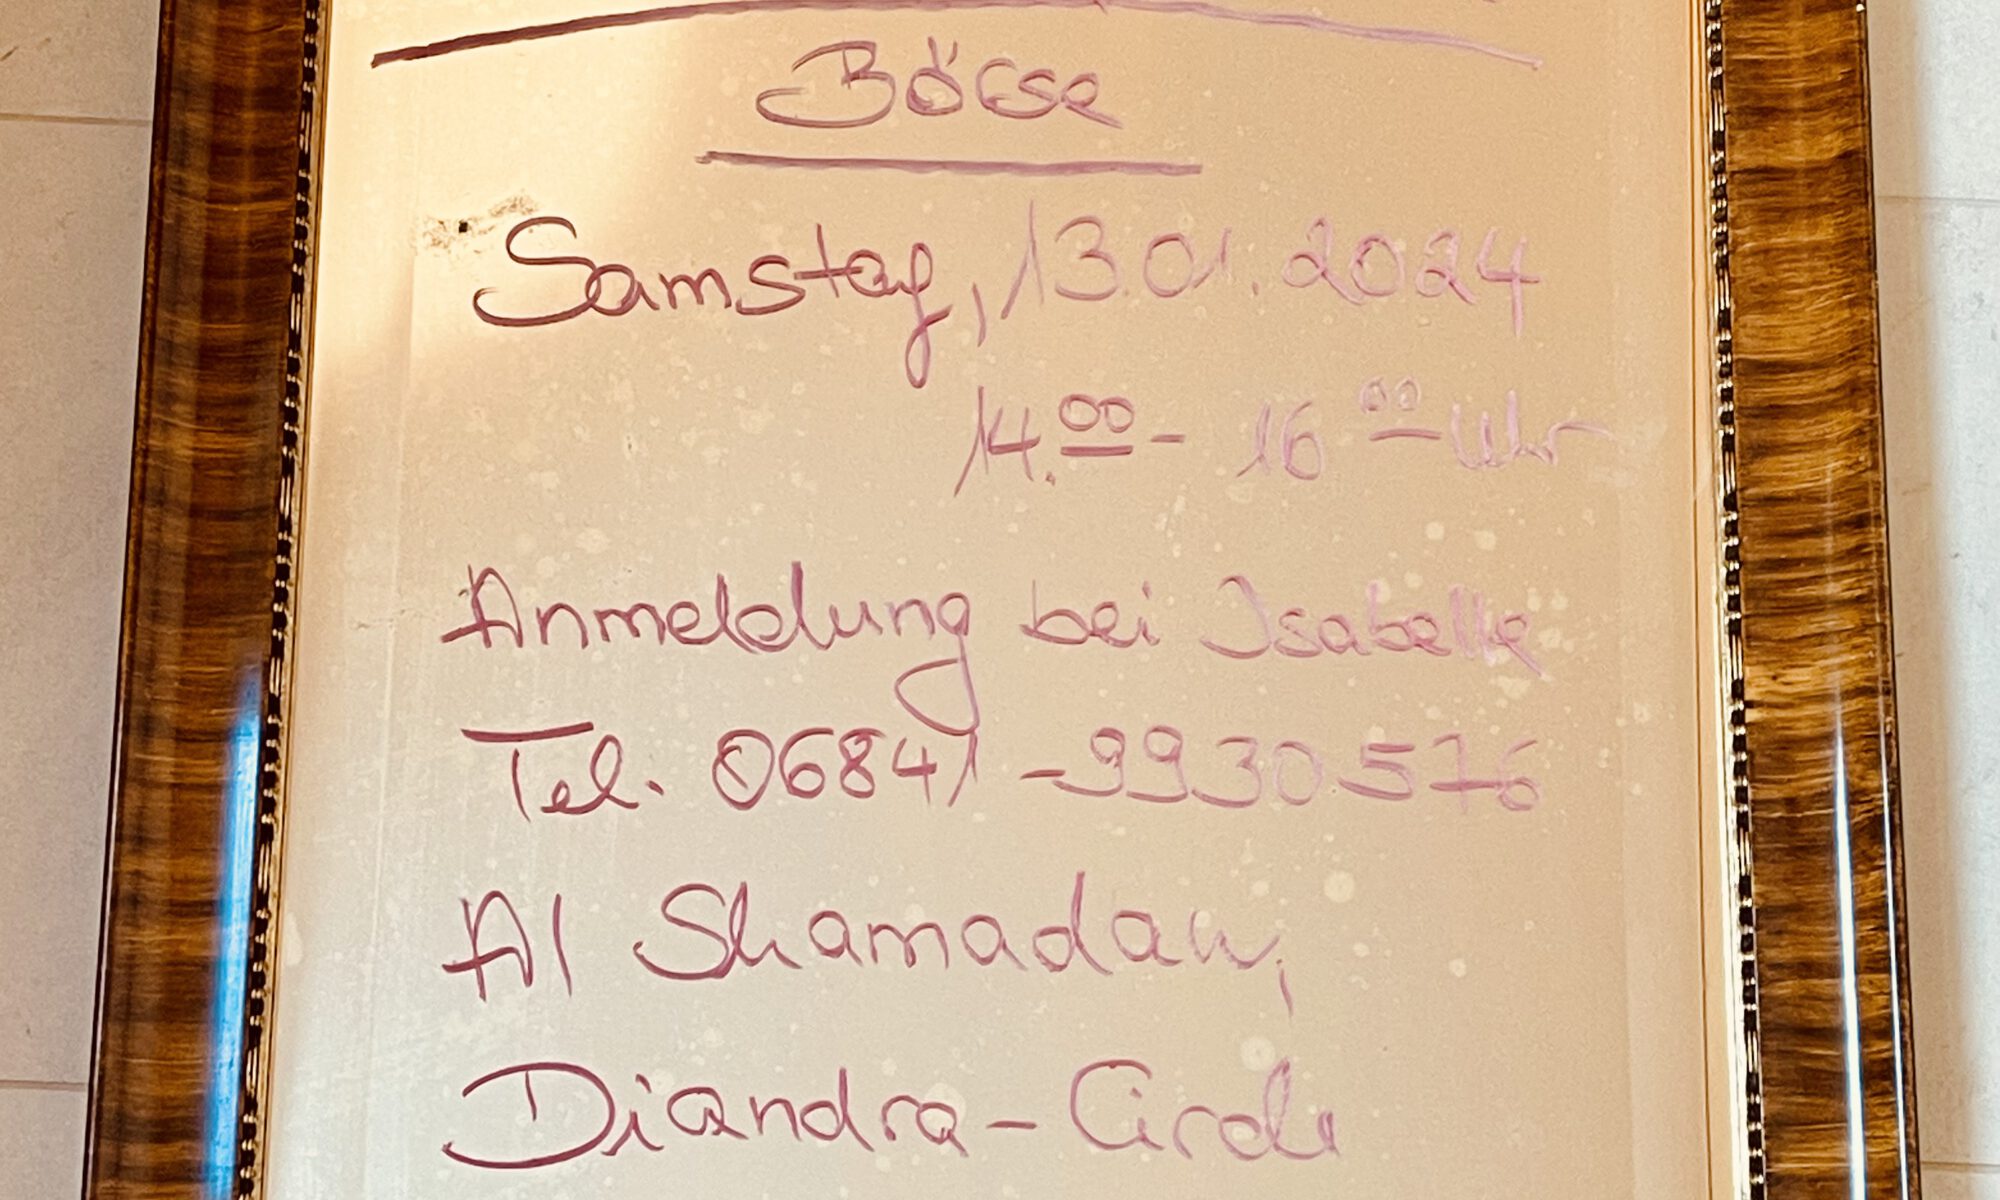 Börse
Samstag, 13.01.2024
14.00 - 16 00 Uhr
Anmeldung bei Isabelle
Tel. 06841 - 9930576
Al Shamadan,
Diandra - Circle